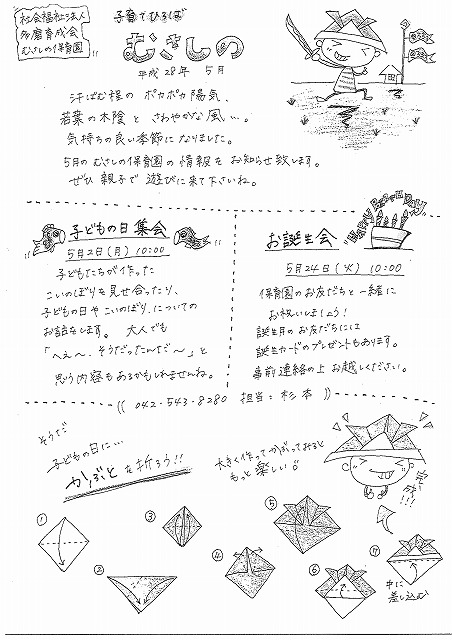 社会福祉法人
多磨育成会
むさしの保育園
子育てひろば
むさしの
平成28年 5月
汗ばむ程の ポカポカ陽気、
若葉の木陰と さわやかな風…。
気持ちの良い季節になりました。
5月の むさしの保育園の 情報を お知らせ致します。
ぜひ 親子で 遊びに来て下さいね。
子どもの日集会
5月2日(月) 10:00
子どもたちが作った
こいのぼりを見せ合ったり、
子どもの日や こいのぼり、についての
お話をします。 大人でも
「へぇ〜、そうだったんだ〜」と
思う内容もあるかもしれませんね。
HAPPY BIRTH DAY
お誕生会
5月24日(火) 10:00
保育園のお友だちと 一緒に
お祝いしましょう!
誕生月の お友だちには
誕生カードのプレゼントもあります。
事前連絡の上 お越しください。
(( 042-543-8280 担当:杉本 ))
そうだ
子どもの日に…
かぶとを折ろう!!
大きく作ってかぶってみると
もっと楽しい♪
完成!!!
①
②
③
④
⑤
⑥
⑦
中に
差し込む